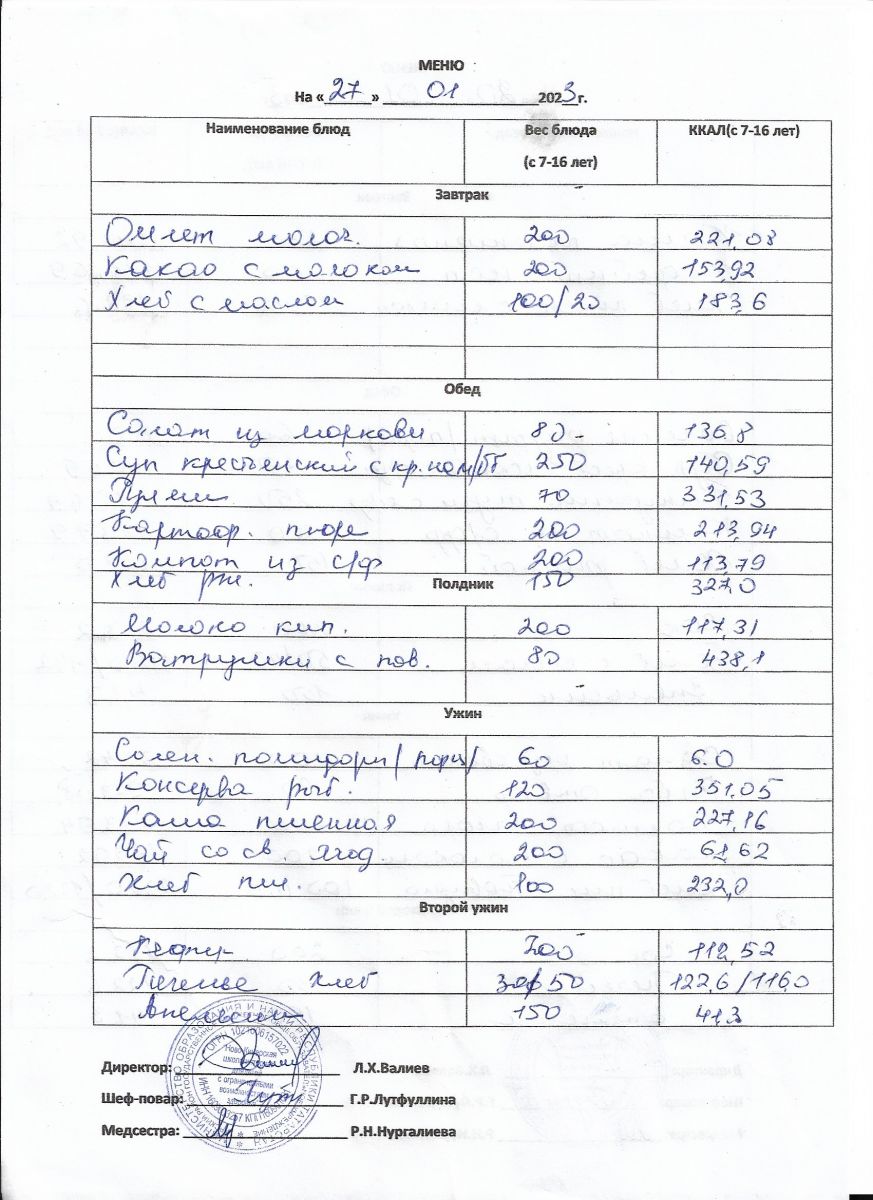 МЕНЮ
На «27» 01 2023г.
Наименование блюд Вес блюда (с 7-16 лет) ККАЛ(с 7-16 лет)
Завтрак
Омлет молоч. 200 221,08
Какао с молоком 200 153,92
Хлеб с маслом 100/20 183,6
Обед
Салат из моркови 80 136.8
Суп крестьенский с кр. 250 140,59
70 331,53
Картоф. пюре 200 213,94
Компот из с/ф 200 113,79
Хлеб рж. 150 327,0
Полдник
Молоко кип. 200 117,31
Ватрушки с пов. 80 438,1
Ужин
Солен. помидоры /порц/ 60 6.0
Консерва рыб. 120 351,05
Каша пшенная 200 227,16
Чай со св ягод 200 61,62
Хлеб пш. 100 232,0
Второй ужин
Кефир 200 112,52
Печенье Хлеб 30/50 122,6/116,0
Апельсин 150 41,3
Директор: Л.Х.Валиев
Шеф-повар: Г.Р.Лутфуллина
Медсестра: Р.Н.Нургалиева